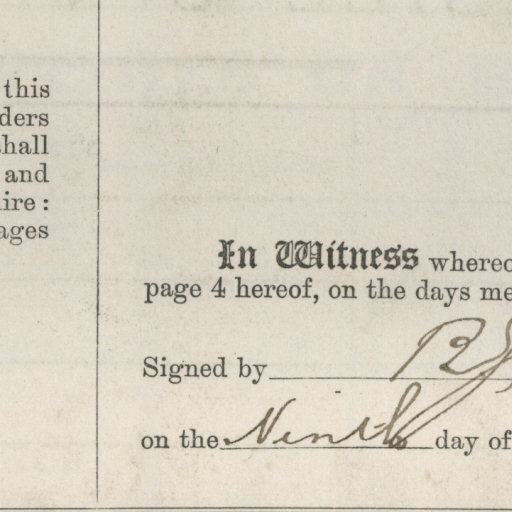 this
ders
hall
and
ire :
ages
In Witness whereo
page 4 hereof, on the days me
Signed by B
on the Ninth day of